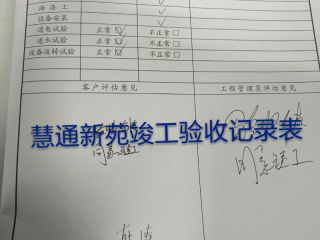 油漆工 ✓
设备安装 ✓
通电试验 正常☑ 不正常☐
通水试验 正常☑ 不正常☐
设备运转试验 正常☑ 不正常☐
客户评估意见 工程管理员评估意见
慧通新苑竣工验收记录表
同意竣工
同意竣工